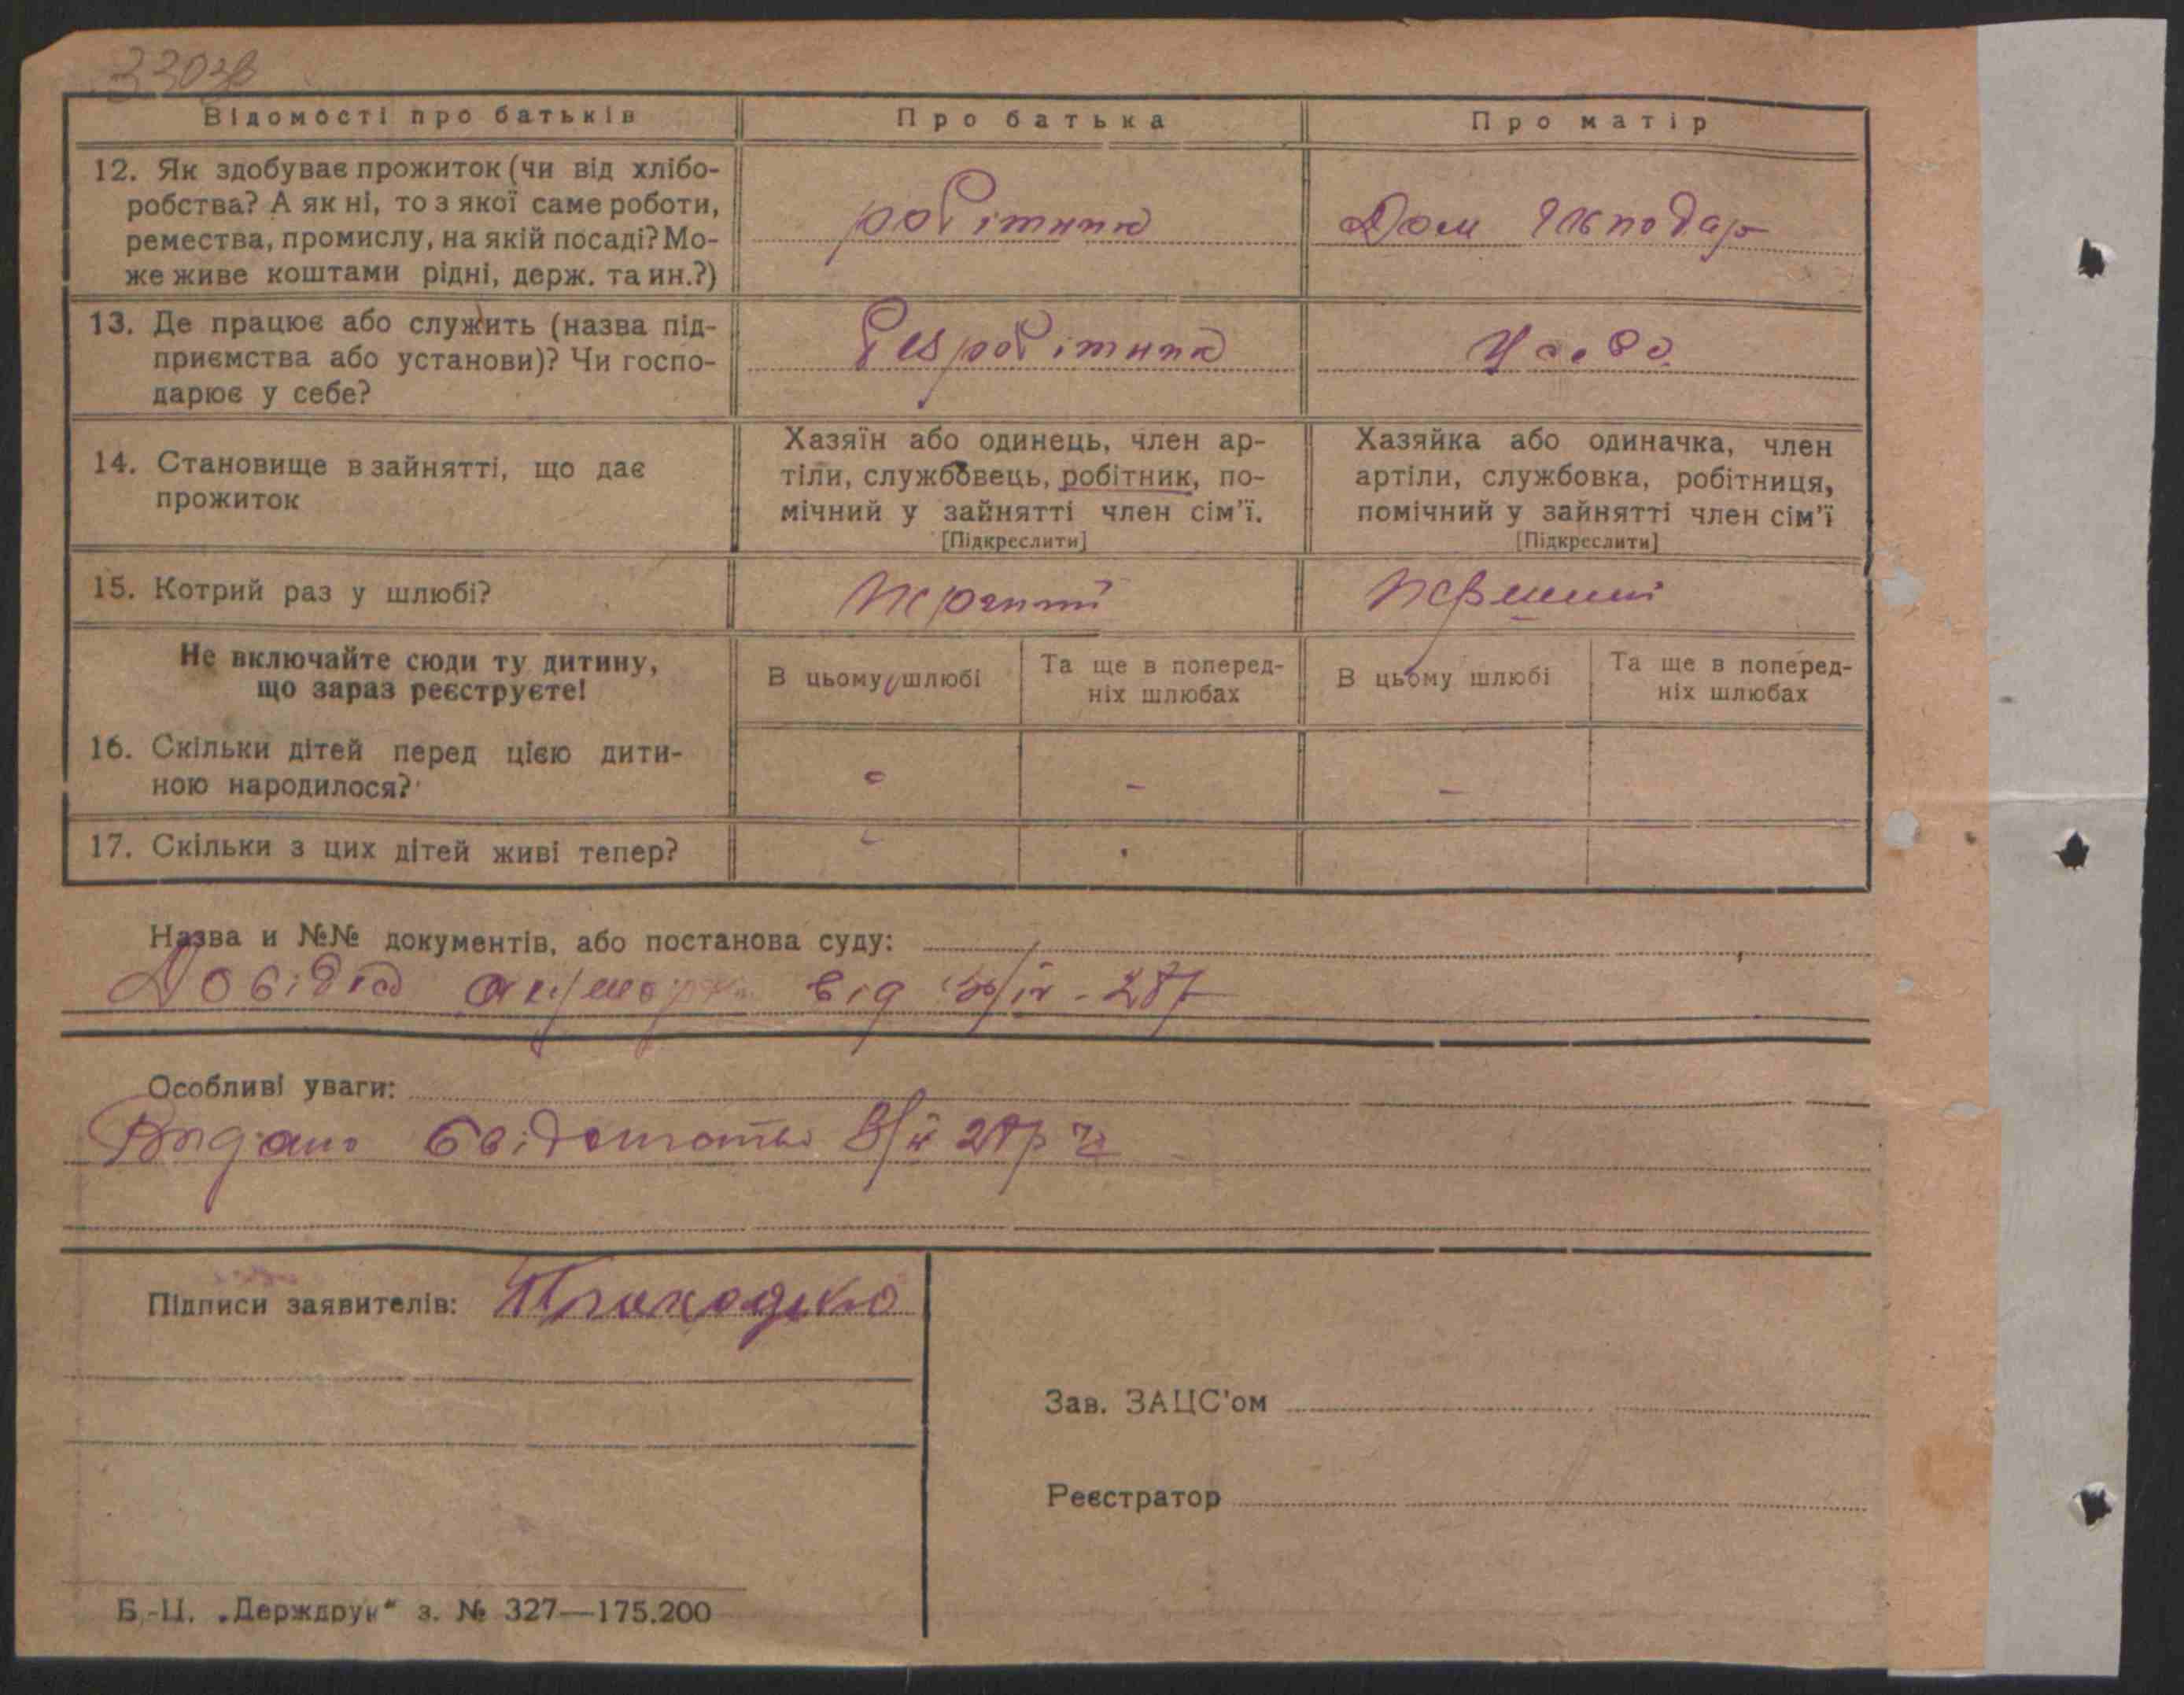 Відомості про батьків
Про батька
Про матір
12. Як здобуває прожиток (чи від хлібо-
робства? А як ні, то з якої саме роботи,
ремества, промислу, на якій посаді? Мо-
же живе коштами рідні, держ. та ин.?)
робітник
Дом господар
13. Де працює або служить (назва під-
приємства або установи)? Чи госпо-
дарює у себе?
Безробітник
14. Становище в зайнятті, що дає
прожиток
Хазяїн або одинець, член ар-
тіли, службовець, робітник, по-
мічний у зайнятті член сім'ї.
[Підкреслити]
Хазяйка або одиначка, член
артіли, службовка, робітниця,
помічний у зайнятті член сім'ї
[Підкреслити]
15. Котрий раз у шлюбі?
Перший
Перший
Не включайте сюди ту дитину,
що зараз реєструєте!
В цьому шлюбі
Та ще в поперед-
ніх шлюбах
В цьому шлюбі
Та ще в поперед-
ніх шлюбах
16. Скільки дітей перед цією дити-
ною народилося?
-
-
-
17. Скільки з цих дітей живі тепер?
-
Назва и №№ документів, або постанова суду:
Довідка від
Особливі уваги:
Видано
Підписи заявителів:
Приходько
Зав. ЗАЦС'ом
Реєстратор
Б.-Ц. „Держдрук" з. № 327—175.200